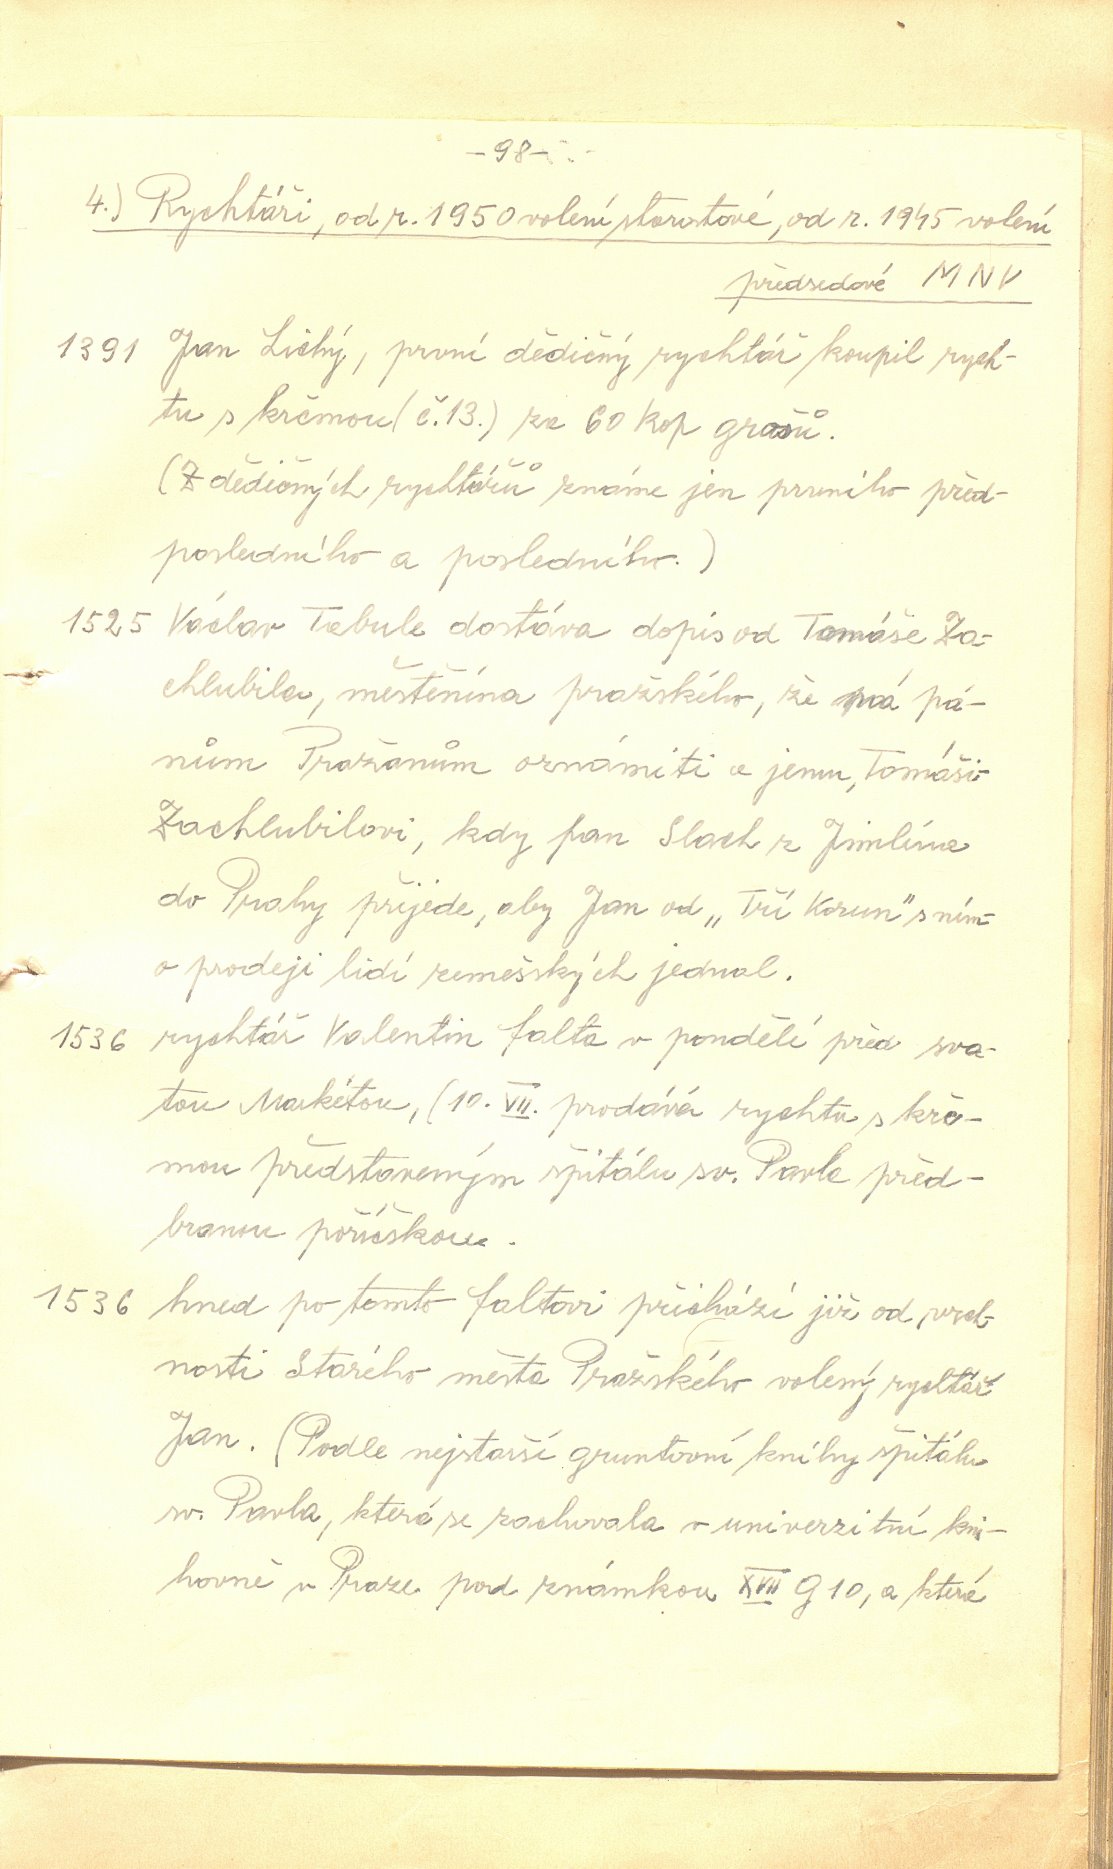 -98-
4.) Rychtáři, od r. 1950 volení starostové, od r. 1945 volení
předsedové MNV
1391 Jan Lichý, první dědičný rychtář koupil rych-
tu s krčmou (č.13.) za 60 kop grošů.
(Z dědičných rychtářů známe jen prvního před-
posledního a posledního.)
1525 Václav Tabule dostáva dopis od Tomáše Za-
chlubila, měštěnína pražského, že má pá-
nům Pražanům oznámiti a jemu, Tomáši
Zachlubilovi, kdy pan Slach z Jimlína
do Prahy přijede, aby Jan od „Tří Korun" s ním
o prodeji lidí zemešských jednal.
1536 rychtář Valentin Falta v pondělí před sva-
tou Markétou, (10. VII. prodává rychtu s krč-
mou představeným špitálu sv. Pavla před-
branou poříčskou.
1536 hned po tomto Faltovi přichází již od vrch-
nosti Starého města Pražského volený rychtář
Jan. (Podle nejstarší gruntovní knihy špitálu
sv. Pavla, která se zachovala v univerzitní kni-
hovně v Praze pod známkou XVII G 10, a která